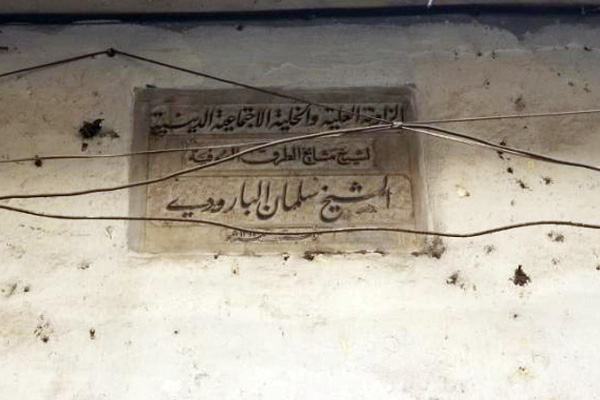 الزاوية العلية والخلية الاجتماعية الدينية
لشيخ مشايخ الطرق الصوفية
الشيخ سلمان البارودي